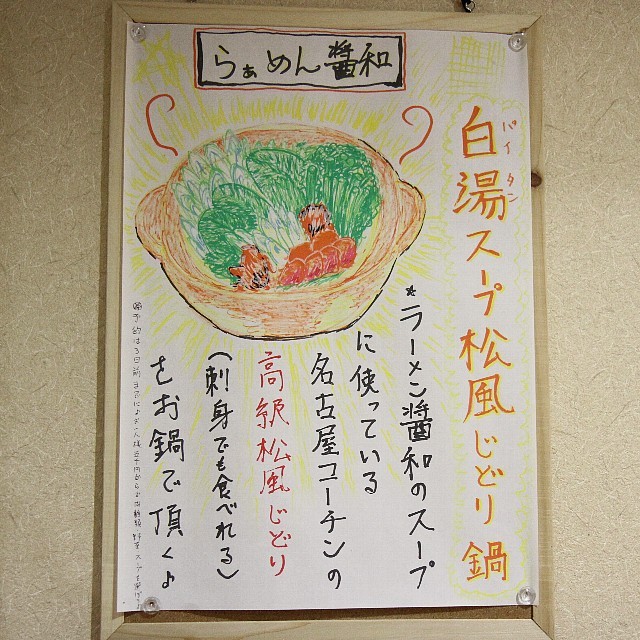 らぁめん醤和
白湯スープ松風じどり鍋
パイタン
*ラーメン醤和のスープ
に使っている
名古屋コーチンの
高級松風じどり
(刺身でも食べれる)
をお鍋で頂く♪
予約は3日前までに